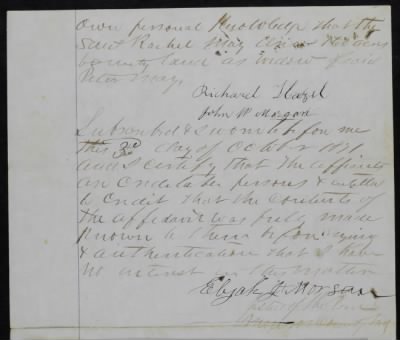 own personal Knowledge that the
said Rachel May
bounty land as widow of said
Peter May
Richard Hazel
John W Morgan
Subscribed & sworn to before me
this 3d day of October 1871
and I certify that the affiants
are Credible persons & entitled
to Credit that the contents of
the affidavit was fully made
Known to them before signing
& authentication that I have
no interest in this matter
Elijah J Morgan